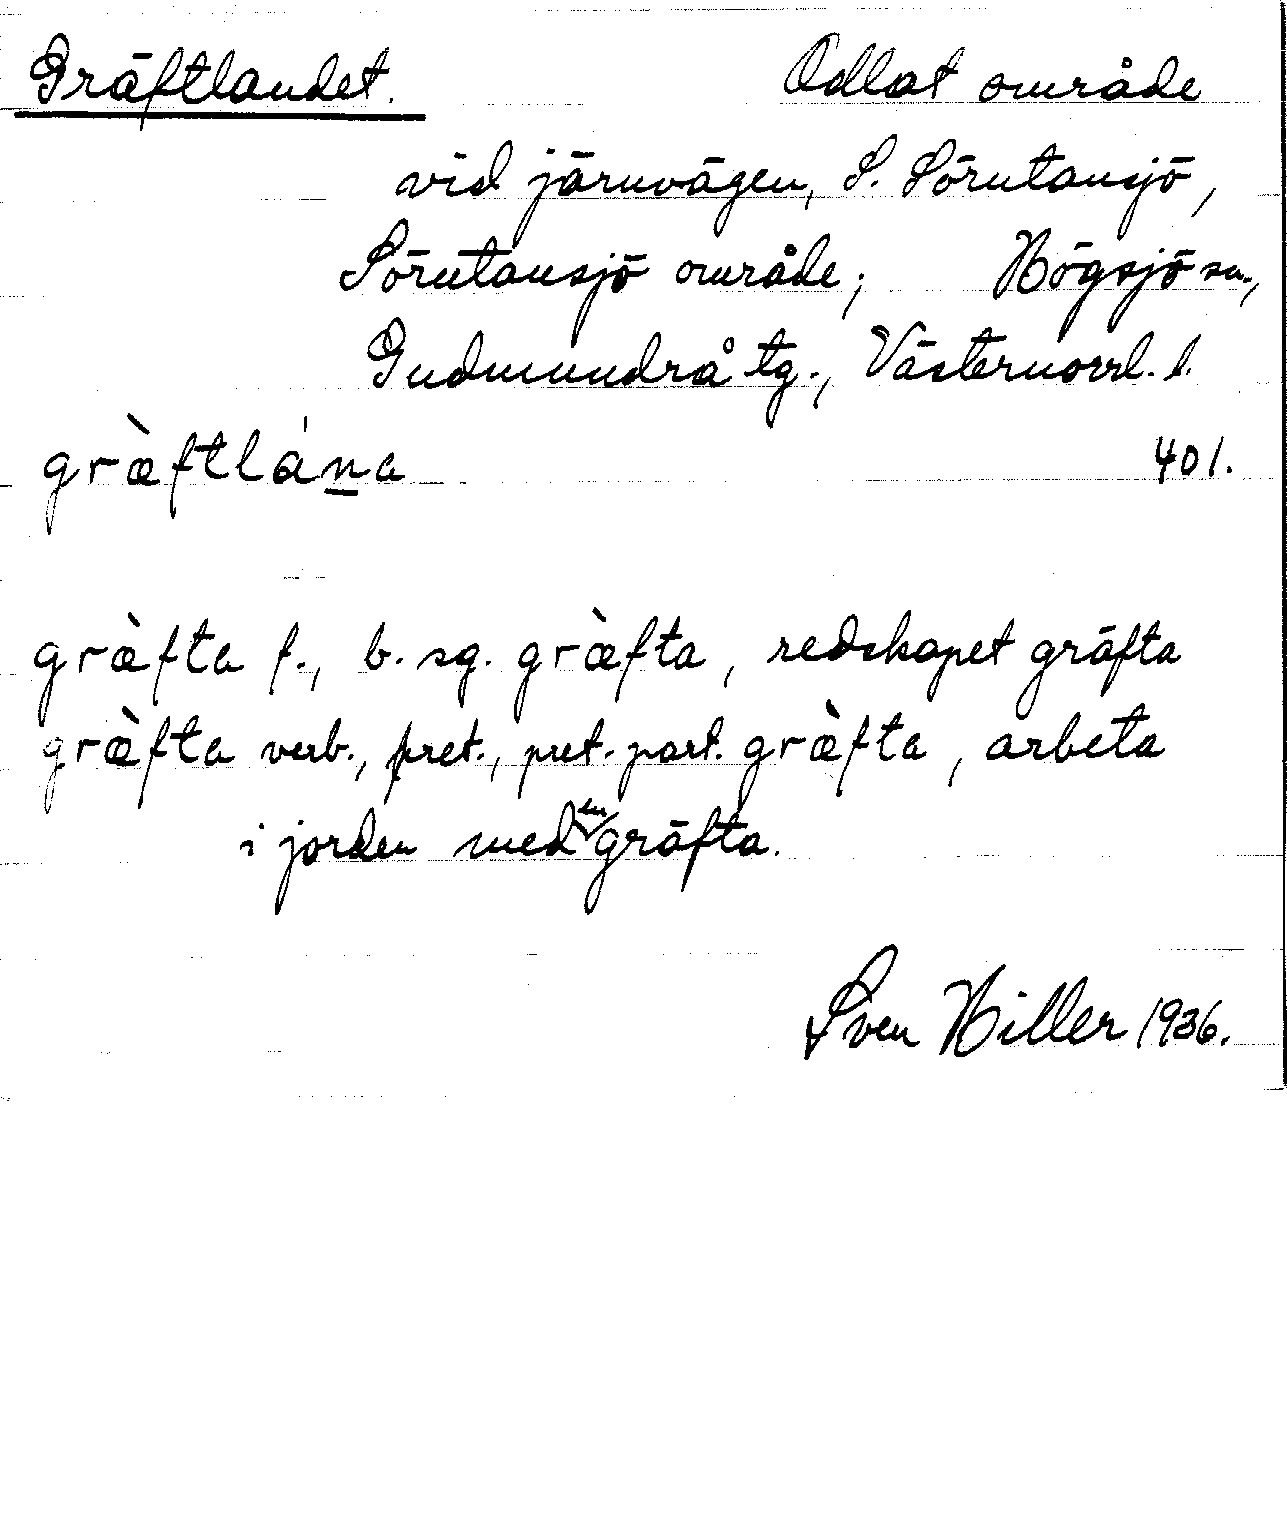 Gräftlandet. Odlat område
vid järnvägen, S. Sörutansjö,
Sörutansjö område; Högsjö sn.,
Gudmundrå tg., Västernorrl. l.
græ̀ftlán̲a 401.
græ̀fta f., b. sg. græ̀fta, redskapet gräfta
græ̀fta verb., pret., pret. part. græ̀fta, arbeta
i jorden med en gräfta.
Sven Hiller 1936.